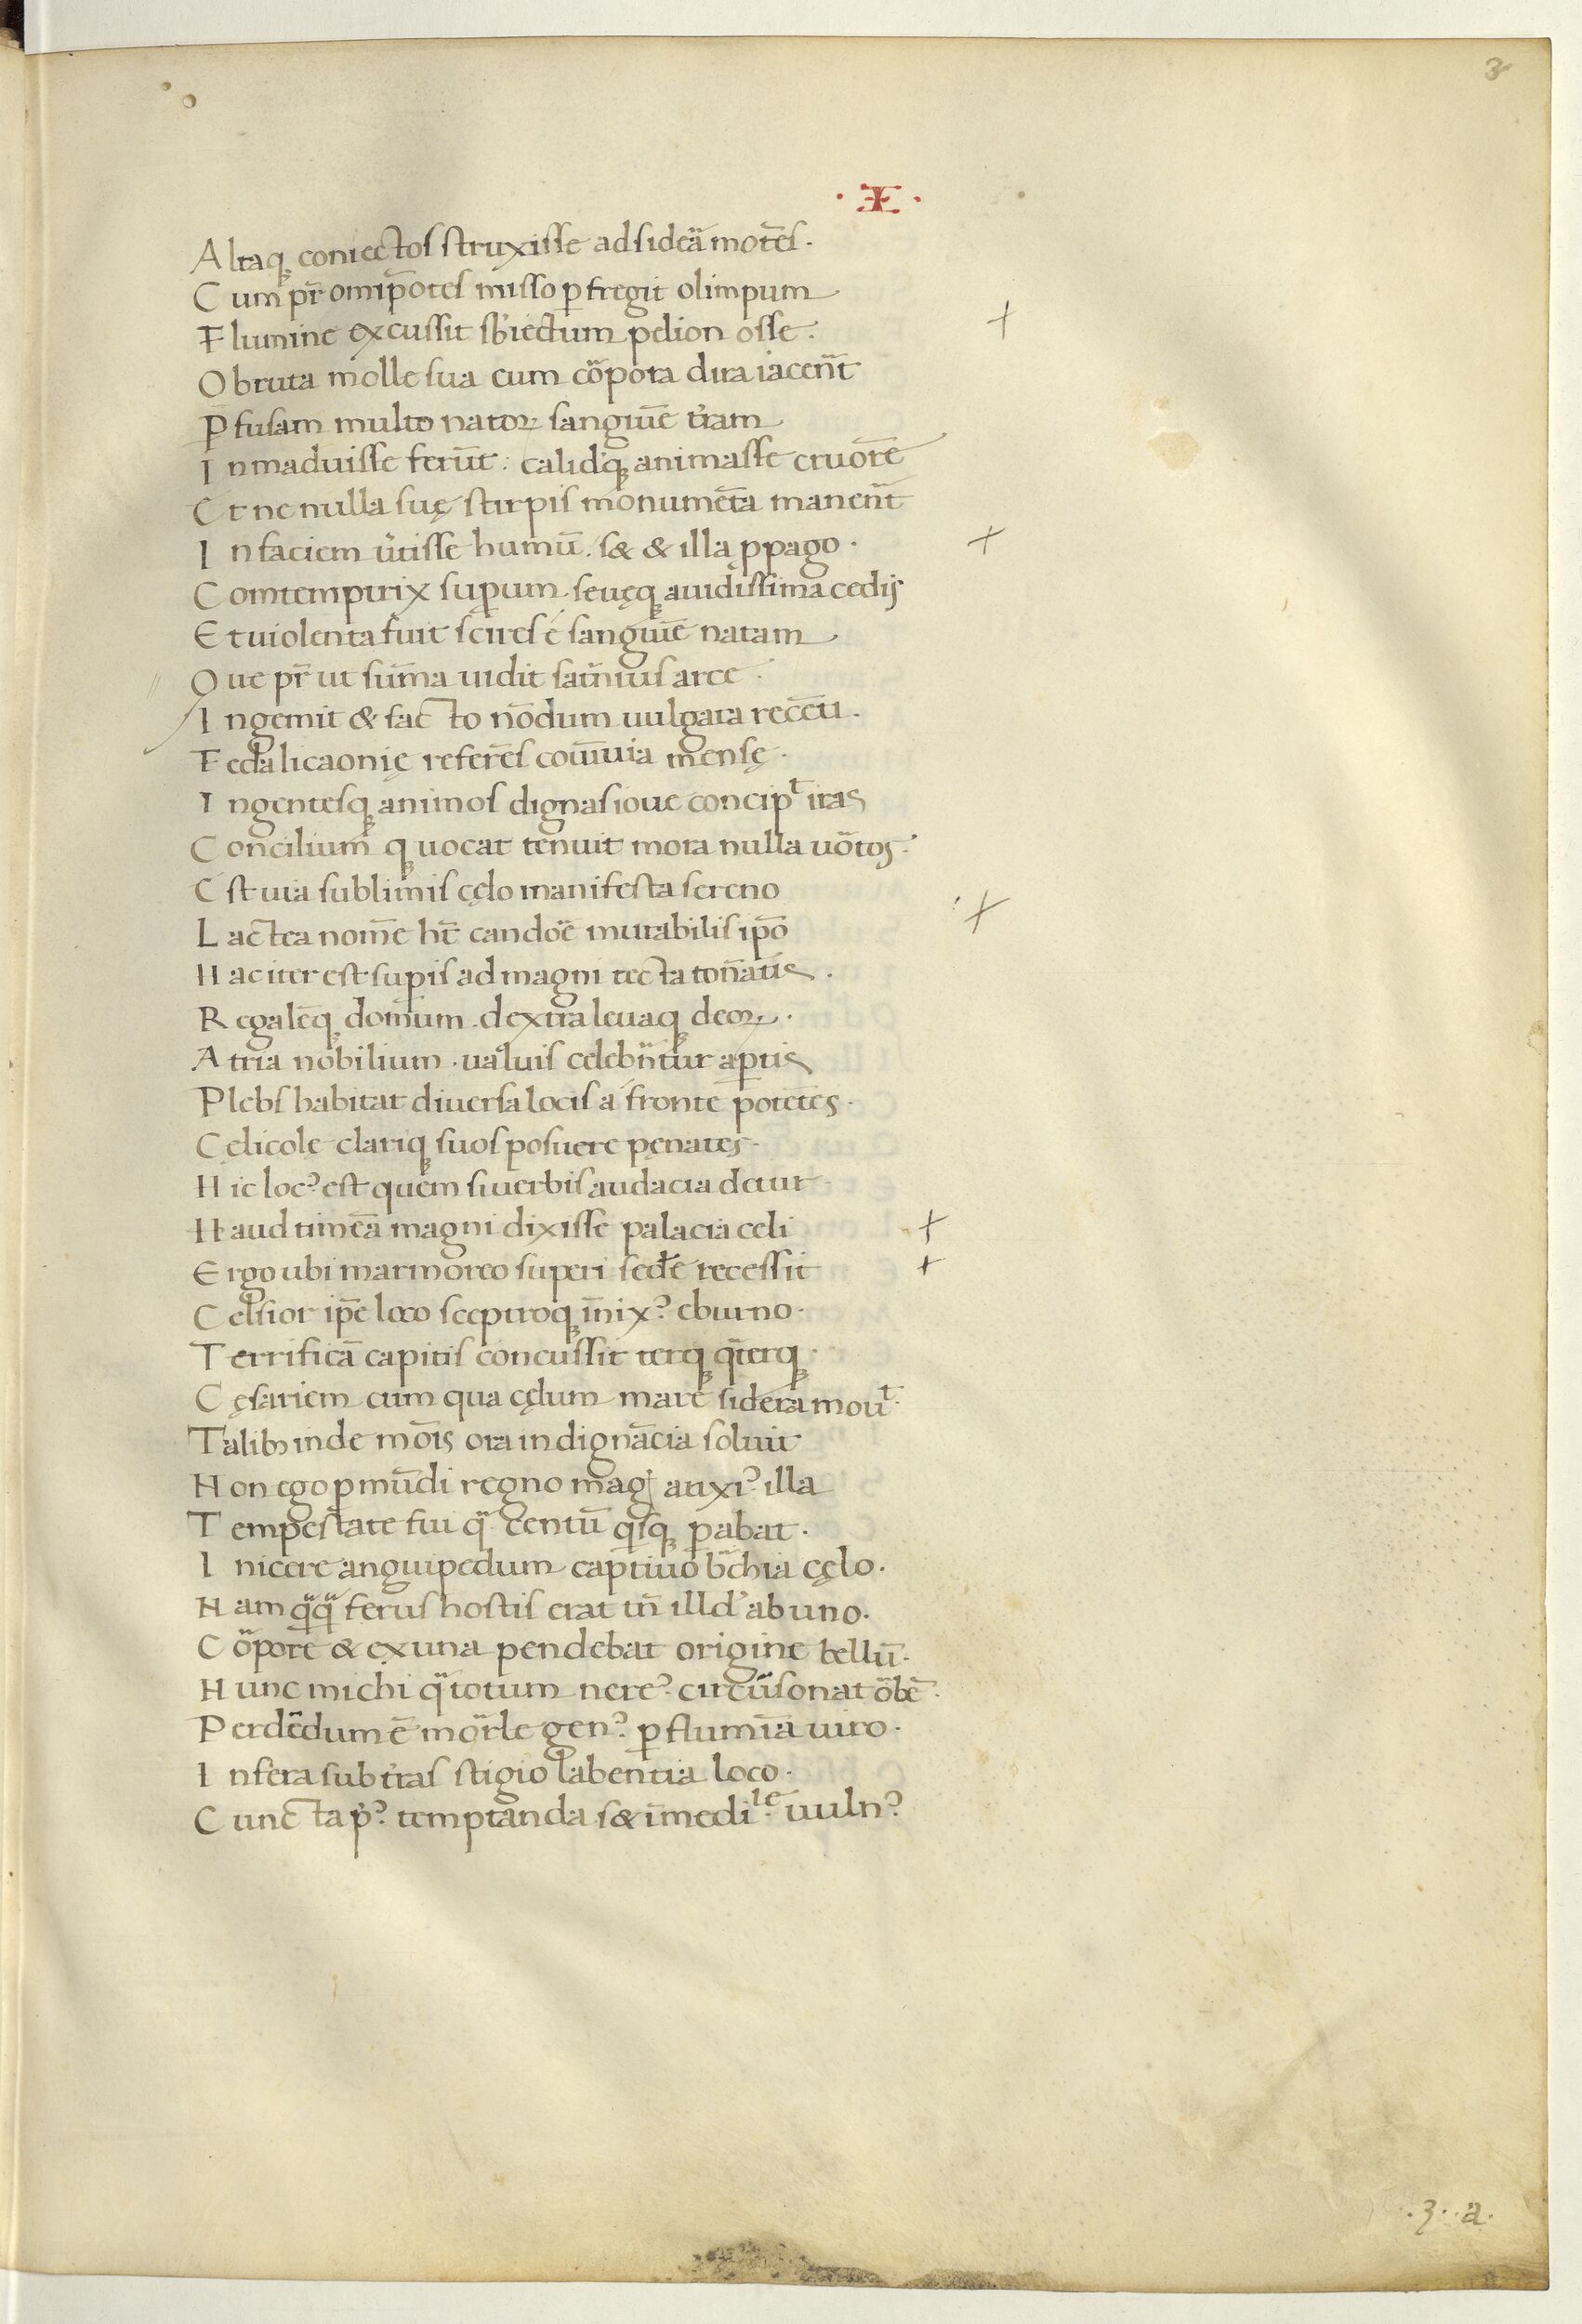 3
·I·
Altaq; coniectos struxisse ad sidera̅ mot̅es.
Cum pr̅ omip̅otes misso p̲fregit olimpum
Flumine excussit sb̓iectum pelion osse.
Obruta molle sua cum co̅pora dira iacen̅t
P̲fusam multo natoꝝ sanguıe̅ tr̓am
Inmaduisse feru̅t: calid'q; animasse cruore̅
Et ne nulla suę stirpis monume̅ta manen̅t
In faciem u̓tisse humu̅. s& & illa ꝓpago.
Comtemptrix sup̲um. seuęq; auidissima cedis
Et uiolenta fuit scires é sanguıe̅ natam
Que pr̅ ut sum̅a uidit satn̅ius arce.
Ingemit & facto no̅dum uulgata rece̅ti.
Feda licaonię refere̅s couı̅uia mensę.
Ingentesq; animos dignas ioue concipᵗ iras
Concilium q; uocat tenuit mora nulla uo̅tos.
Est uia sublimis cęlo manifesta sereno
Lactea nom̅e ht̅ cando̅e mutabilis ip̅o
Hac iter est sup̲is ad magni tecta ton̅atis.
Regale̅q; domum. dextra leuaq; deoꝝ.
Atria nobilium. ualuis celebn̅tur ap̲tis
Plebs habitat diuersa locis á fronte pote̅tes.
Cęlicolę clariq; suos posuere pęnates.
Hic locꝰ est quem si uerbis audacia detur
Haud timea̅ magni dixisse palacia celi
Ergo ubi marmoreo superi sede̅ recessit
Celsior ip̅e loco sceptroq; in̅ixꝰ eburno.
Terrifica̅ capitis concussit terq; qͣterq;.
Cęsariem cum qua cęlum mare sidera mouᵗ.
Talibꝫ inde mo̅is ora indigna̅cia soluit
Non ego ꝓ mu̅di regno magꝭ anxiꝰ illa
Tempestate fui qͣ centu̅ qⁱsq; p̲abat.
Inicere anguipedum captiuo bͣchia cęlo.
Nam qͣqͣ ferus hostis erat tn̅ illd' ab uno.
Co̅pore & ex una pendebat origine bellu̅.
Nunc michi qͣ totum nereꝰ circu̅sonat o̅be̅.
Perde̅dum e̅ mo̅tle genꝰ p̲ flumin̅a uiro.
Infera sub tr̓as stigio labentia loco.
Cuncta p̓ꝰ temptanda s& i̅medıˡᵉ uulnꝰ
.3. a.